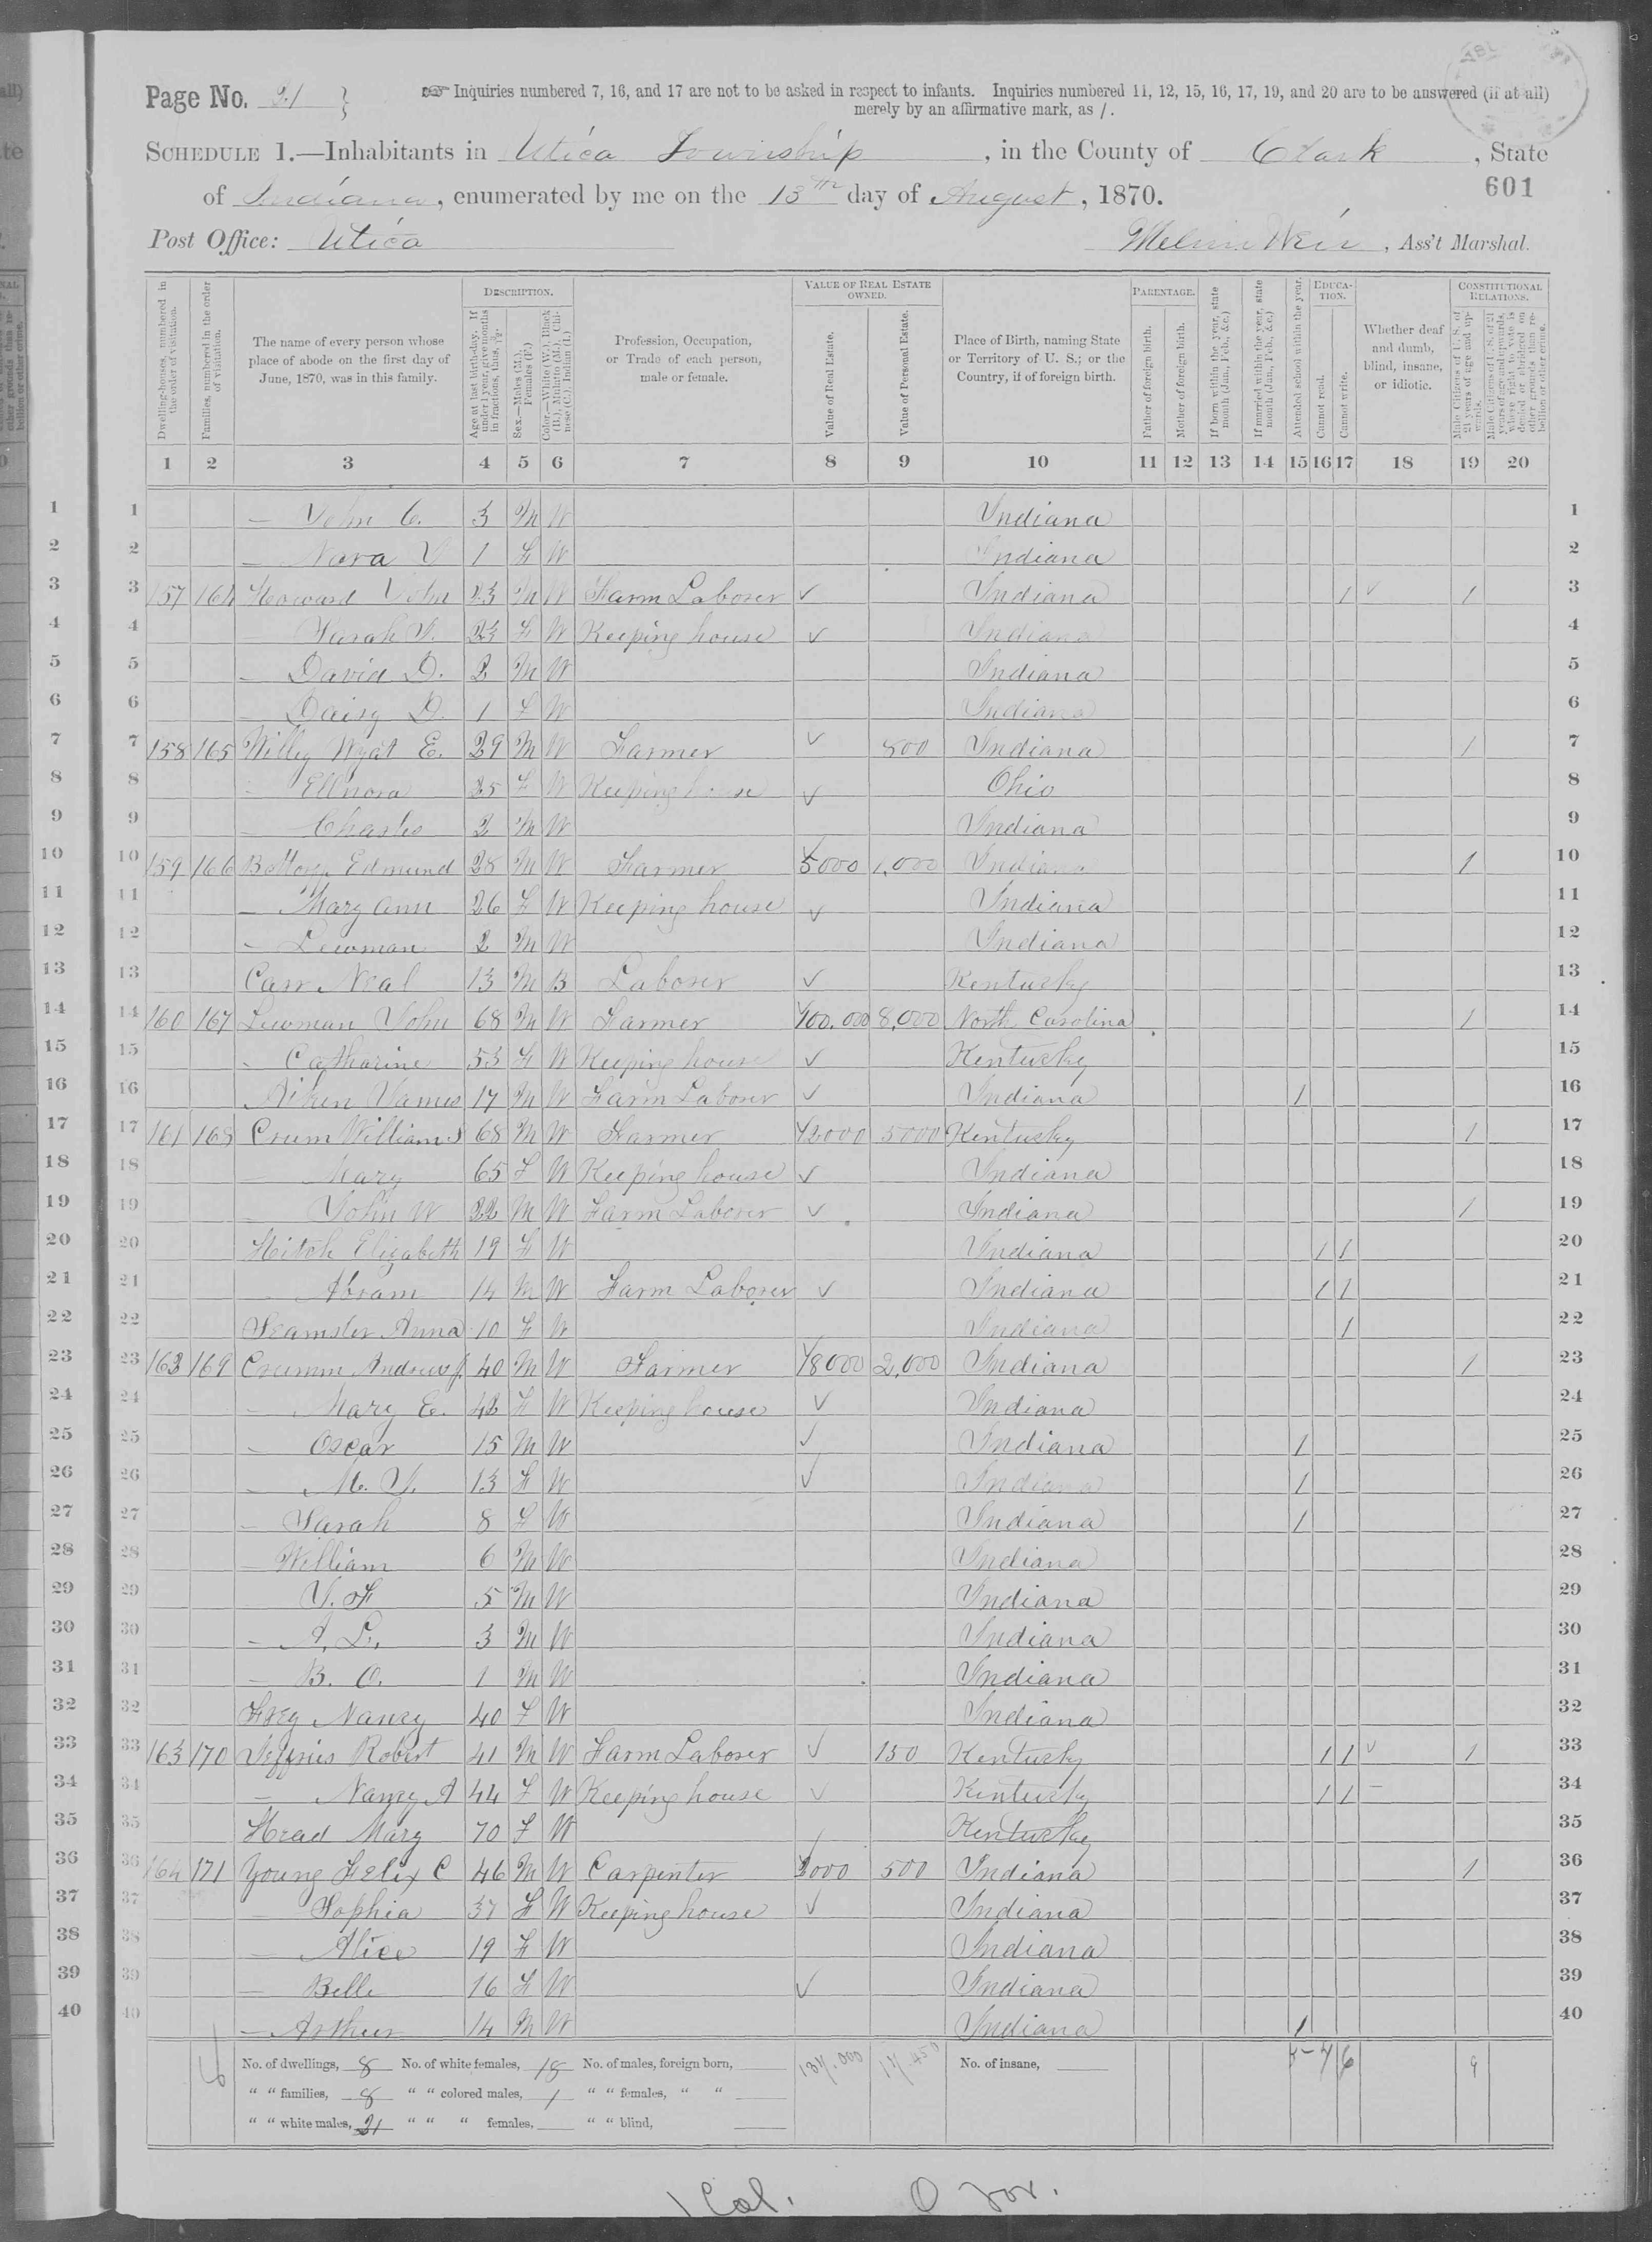 Page No. 21 } ☞ Inquiries numbered 7, 16, and 17 are not to be asked in respect to infants. Inquiries numbered 11, 12, 15, 16, 17, 19, and 20 are to be answered (if at all)
merely by an affirmative mark, as /.
SCHEDULE 1.—Inhabitants in Utica Township, in the County of Clark, State
of Indiana, enumerated by me on the 13th day of August, 1870.
601
Post Office: Utica Melvin Weir, Ass't Marshal.
Dwelling-houses, numbered in the order of visitation.
Families, numbered in the order of visitation.
The name of every person whose place of abode on the first day of June, 1870, was in this family.
DESCRIPTION.
Age at last birthday. If under 1 year, give months in fractions, thus, 3/12.
Sex.—Males (M.), Females (F.)
Color.—White (W.), Black (B.), Mulatto (M.), Chinese (C.), Indian (I.)
Profession, Occupation, or Trade of each person, male or female.
VALUE OF REAL ESTATE OWNED.
Value of Real Estate.
Value of Personal Estate.
Place of Birth, naming State or Territory of U. S.; or the Country, if of foreign birth.
PARENTAGE.
Father of foreign birth.
Mother of foreign birth.
If born within the year, state month (Jan., Feb., &c.)
If married within the year, state month (Jan., Feb., &c.)
Attended school within the year.
EDUCATION.
Cannot read.
Cannot write.
Whether deaf and dumb, blind, insane, or idiotic.
CONSTITUTIONAL RELATIONS.
Male Citizens of U. S. of 21 years of age and upwards.
Male Citizens of U. S. of 21 years of age and upwards, whose right to vote is denied or abridged on other grounds than rebellion or other crime.
1 2 3 4 5 6 7 8 9 10 11 12 13 14 15 16 17 18 19 20
1 — John C. 3 M W Indiana 1
2 — Nora J 1 F W Indiana 2
3 157 164 Howard John 23 M W Farm Laborer ✓ Indiana / ✓ / 3
4 — Sarah J. 23 F W Keeping house ✓ Indiana 4
5 — David D. 2 M W Indiana 5
6 — Daisy D. 1 F W Indiana 6
7 158 165 Willey Wyat E. 29 M W Farmer ✓ 800 Indiana / 7
8 — Ellnora 25 F W Keeping house ✓ Ohio 8
9 — Charles 2 M W Indiana 9
10 159 166 Edmund 28 M W Farmer 5000 1,000 Indiana / 10
11 — Mary Ann 26 F W Keeping house ✓ Indiana 11
12 — Lewman 2 M W Indiana 12
13 Carr Neal 13 M B Laborer ✓ Kentucky 13
14 160 167 Lewman John 68 M W Farmer 100,000 8,000 North Carolina / 14
15 — Catharine 53 F W Keeping house ✓ Kentucky 15
16 Aiken James 17 M W Farm Laborer ✓ Indiana / 16
17 161 168 Crum William S 68 M W Farmer 12000 5000 Kentucky / 17
18 — Mary 65 F W Keeping house ✓ Indiana 18
19 — John W 22 M W Farm Laborer ✓ Indiana / 19
20 Hitch Elizabeth 19 F W Indiana / / 20
21 — Abram 14 M W Farm Laborer ✓ Indiana / / 21
22 Seamster Anna 10 F W Indiana / 22
23 162 169 Crumm Andrew J. 40 M W Farmer 18000 2,000 Indiana / 23
24 — Mary E. 42 F W Keeping house ✓ Indiana 24
25 — Oscar 15 M W ✓ Indiana / 25
26 — M. J. 13 F W ✓ Indiana / 26
27 — Sarah 8 F W Indiana / 27
28 — William 6 M W Indiana 28
29 J. F 5 M W Indiana 29
30 — A. L. 3 M W Indiana 30
31 — B. O. 1 M W Indiana 31
32 Frey Nancy 40 F W Indiana 32
33 163 170 Jeffries Robert 41 M W Farm Laborer ✓ 150 Kentucky / / ✓ / 33
34 — Nancy A 44 F W Keeping house ✓ Kentucky / / – 34
35 Head Mary 70 F W Kentucky 35
36 164 171 Young Felix C 46 M W Carpenter 2000 500 Indiana / 36
37 Sophia 37 F W Keeping house ✓ Indiana 37
38 — Alice 19 F W Indiana 38
39 — Belle 16 F W ✓ Indiana 39
40 — Arthur 14 M W Indiana / 40
No. of dwellings, 8 No. of white females, 18 No. of males, foreign born, 137,000 17,450 No. of insane, 5 4 6 9
" " families, 8 " " colored males, 1 " " females, " "
" " white males, 21 " " " females, " " blind,
1 Col. 0 for.